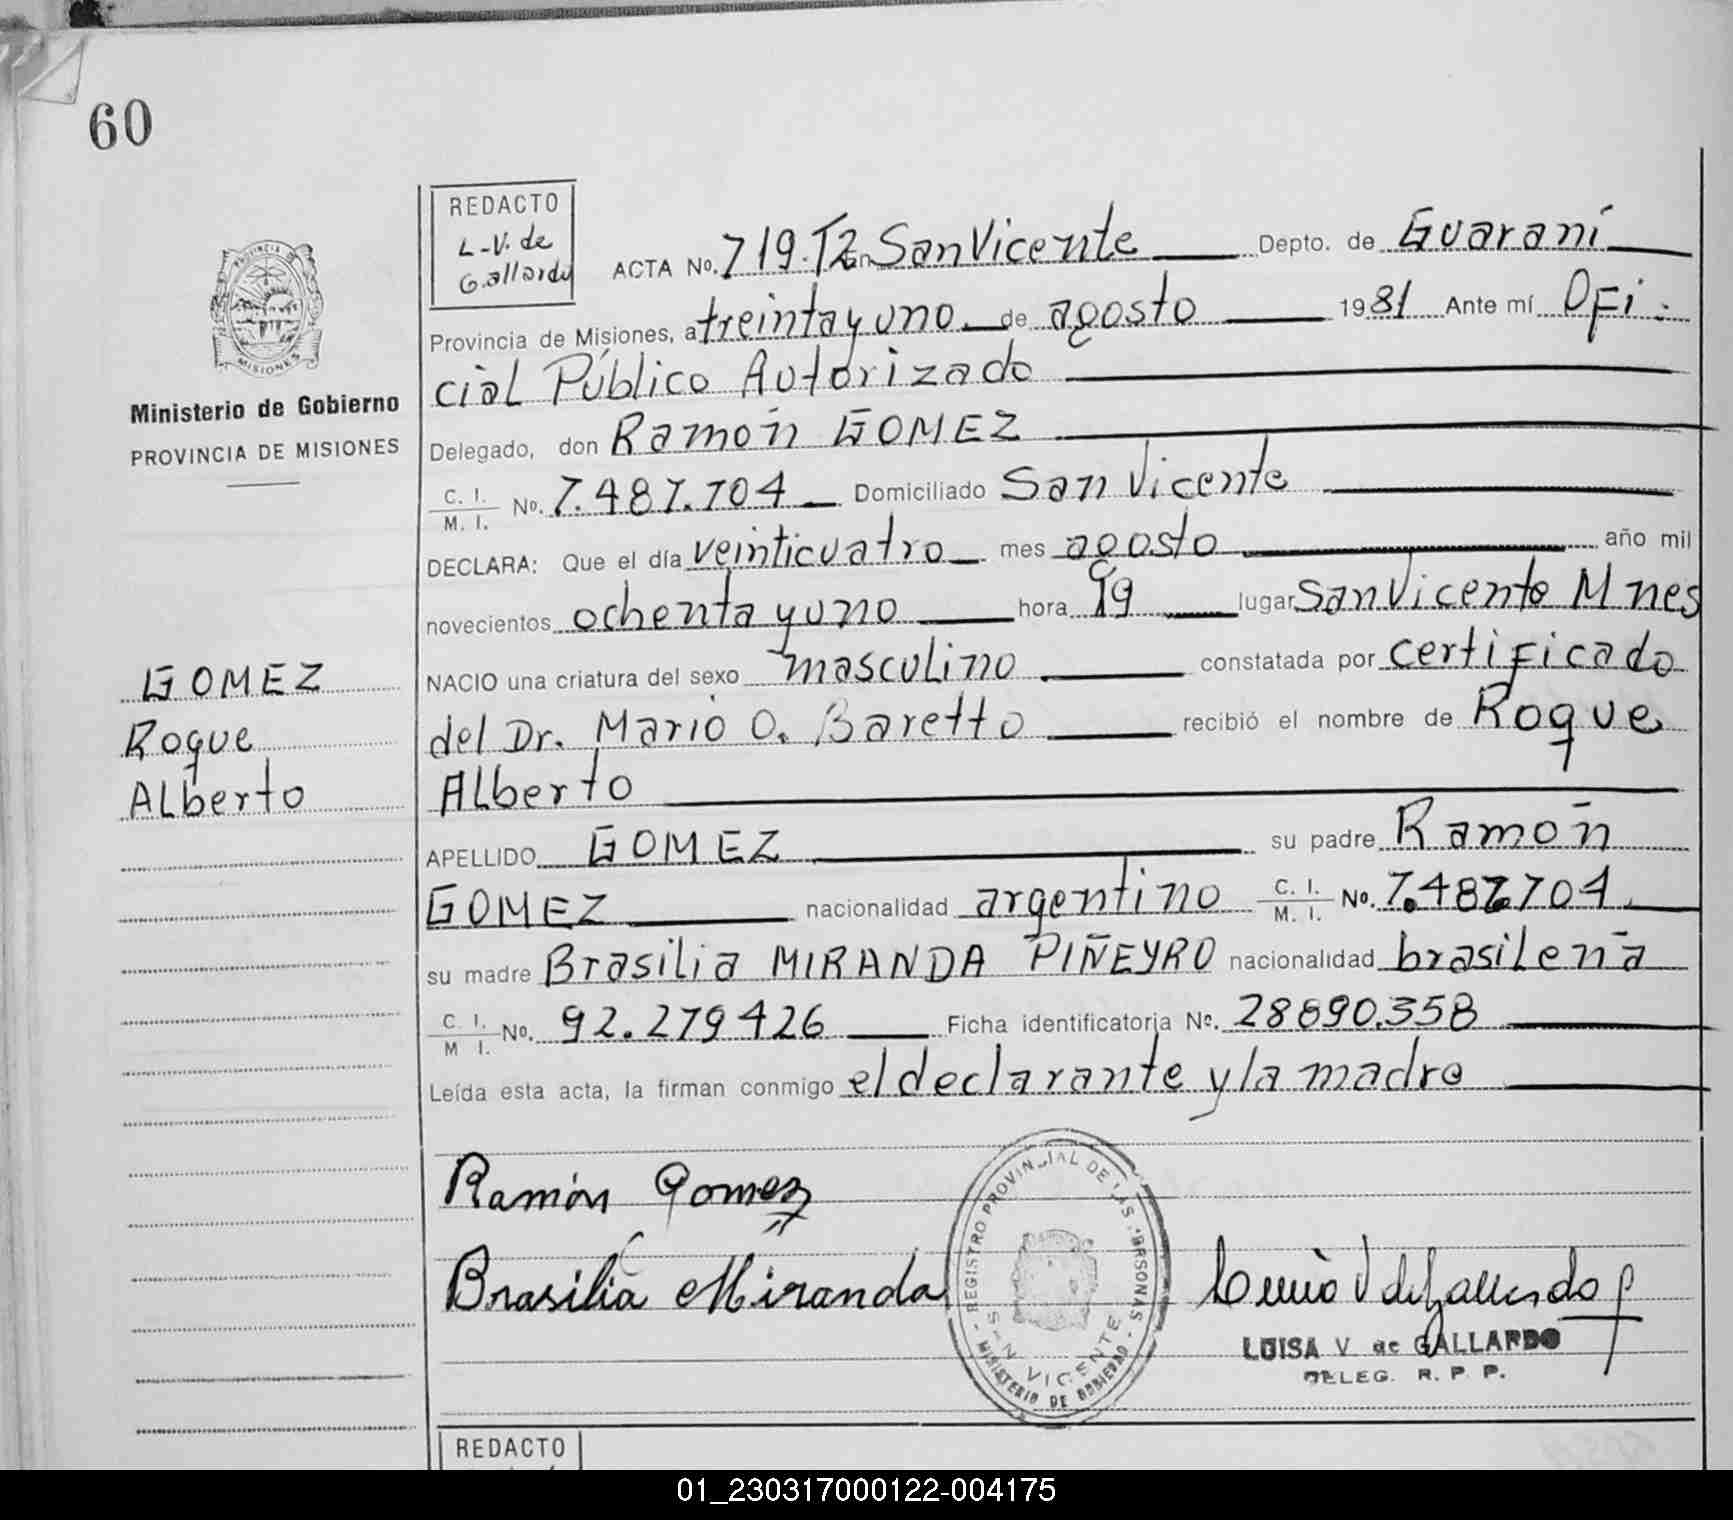 60
REDACTO
L-V. de
Gallardo
ACTA No. 719.T2 en San Vicente Depto. de Guaraní
Provincia de Misiones, a treinta y uno de agosto 1981 Ante mí Ofi-
cial Público Autorizado
Delegado, don Ramón GOMEZ
C. I.
M. I. No. 7.487.704 Domiciliado San Vicente
DECLARA: Que el día veinticuatro mes agosto año mil
novecientos ochenta y uno hora 19 lugar San Vicente Mnes
NACIO una criatura del sexo masculino constatada por certificado
del Dr. Mario O. Baretto recibió el nombre de Roque
Alberto
APELLIDO GOMEZ su padre Ramón
GOMEZ nacionalidad argentino C. I. M. I. No. 7.487.704
su madre Brasilia MIRANDA PIÑEYRO nacionalidad brasileña
C. I.
M I. No. 92.279426 Ficha identificatoria No. 28890.358
Leída esta acta, la firman conmigo el declarante y la madre
PROVINCIA DE
MISIONES
Ministerio de Gobierno
PROVINCIA DE MISIONES
GOMEZ
Roque
Alberto
Ramón Gomez
Brasilia Miranda
REGISTRO PROVINCIAL DE LAS PERSONAS
SAN VICENTE
MINISTERIO DE GOBIERNO
LUISA V de GALLARDO
DELEG. R. P. P.
REDACTO
01_230317000122-004175